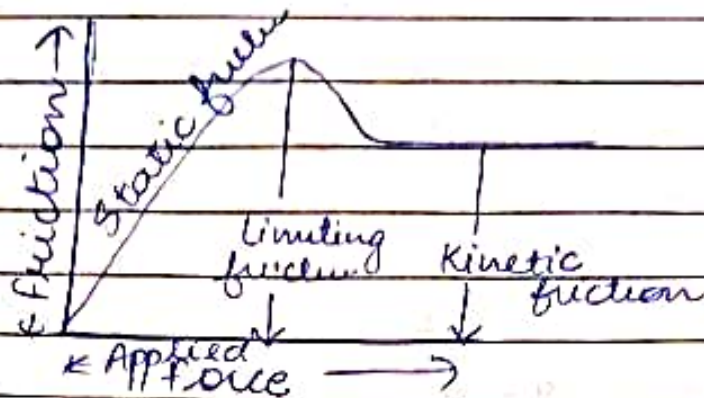 Friction
Static friction
Limiting
friction
Kinetic
friction
Applied
Force